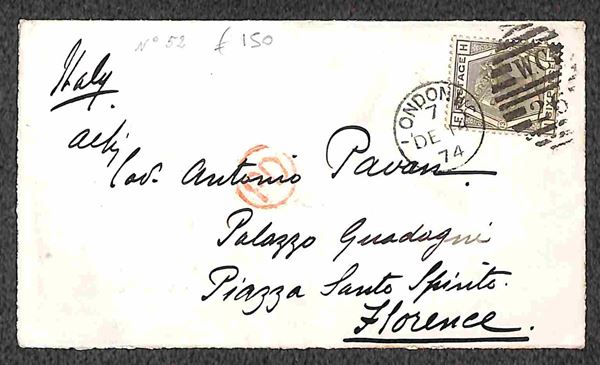 Nº 52 £ 150
Italy
Cav. Antonio Pavan.
Palazzo Guadagni
Piazza Santo Spirito.
Florence.
LONDON
7
DE
74
W.C
POSTAGE
H
SIX
PD